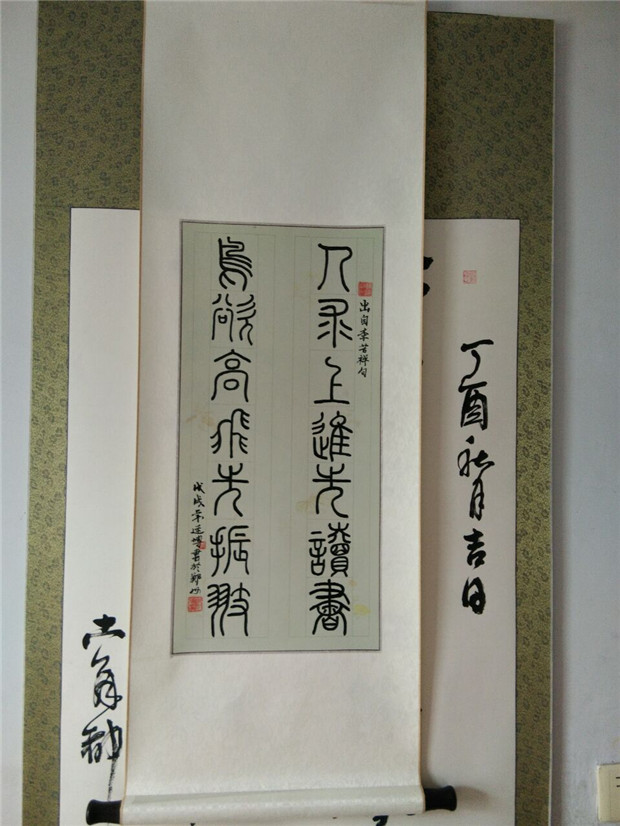 丁酉秋月吉日
出自李苦禪句
人求上進先讀書
鳥欲高飛先振翅
戊戌年書於鄭州